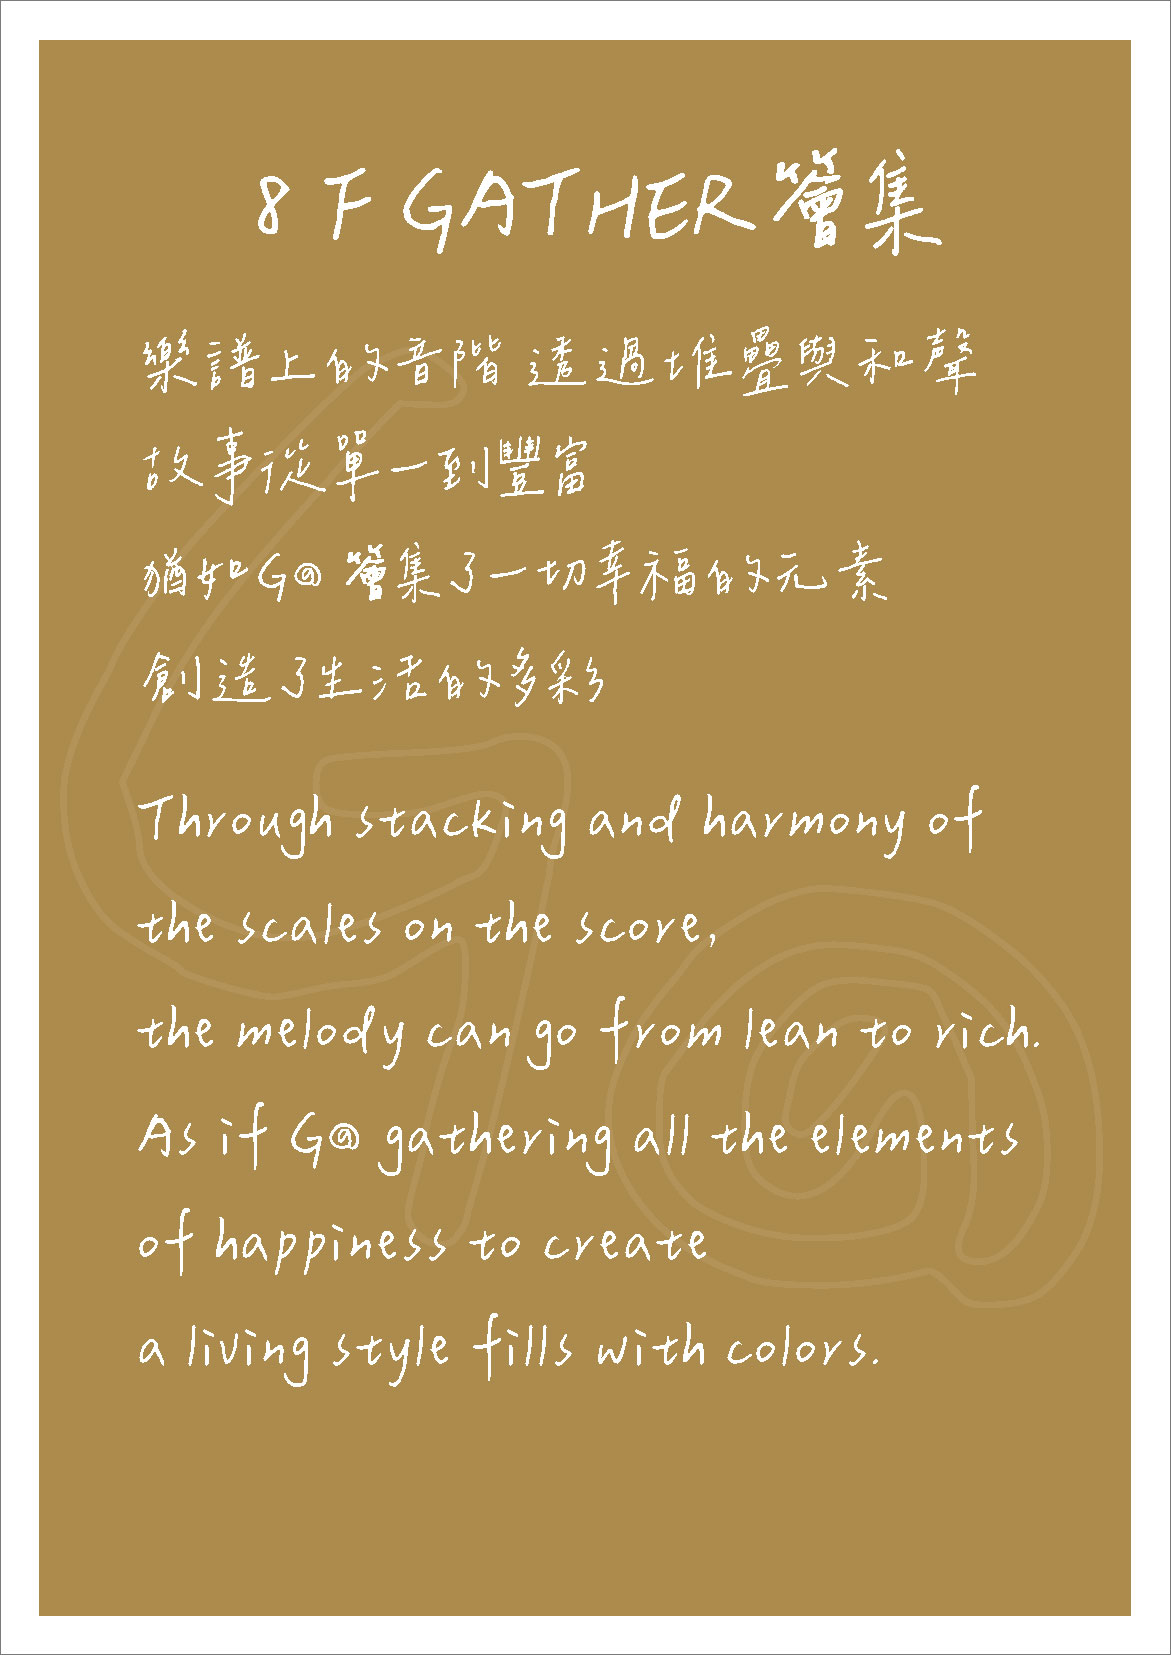 8F GATHER 簪集
樂譜上的音階 透過堆疊與和聲
故事從單一到豐富
猶如G@ 簪集了一切幸福的元素
創造了生活的多彩
Through stacking and harmony of
the scales on the score,
the melody can go from lean to rich.
As if G@ gathering all the elements
of happiness to create
a living style fills with colors.
G@